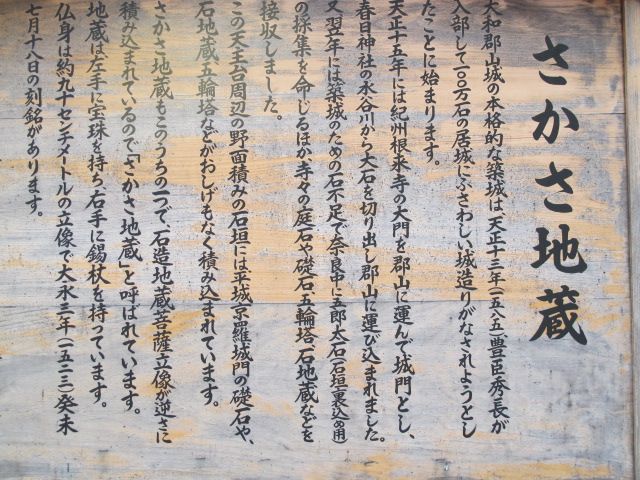 さかさ地蔵
大和郡山城の本格的な築城は、天正十三年(一五八五)豊臣秀長が
入部して一〇〇万石の居城にふさわしい城造りがなされようとし
たことに始まります。
天正十五年には紀州根来寺の大門を郡山に運んで城門とし、
春日神社の水谷川から大石を切り出し郡山に運び込まれました。
又翌年には築城のための石不足で奈良中に五郎太石(石垣の裏込め用)
の採集を命じるほか、寺々の庭石や礎石、五輪塔、石地蔵などを
接収しました。
この天主台周辺の野面積みの石垣には平城京羅城門の礎石や、
石地蔵五輪塔などがおしげもなく積み込まれています。
さかさ地蔵もこのうちの一つで、石造地蔵菩薩立像が逆さに
積み込まれているので「さかさ地蔵」と呼ばれています。
地蔵は左手に宝珠を持ち、右手に錫杖を持っています。
仏身は約九十センチメートルの立像で大永三年(一五二三)癸未
七月十八日の刻銘があります。